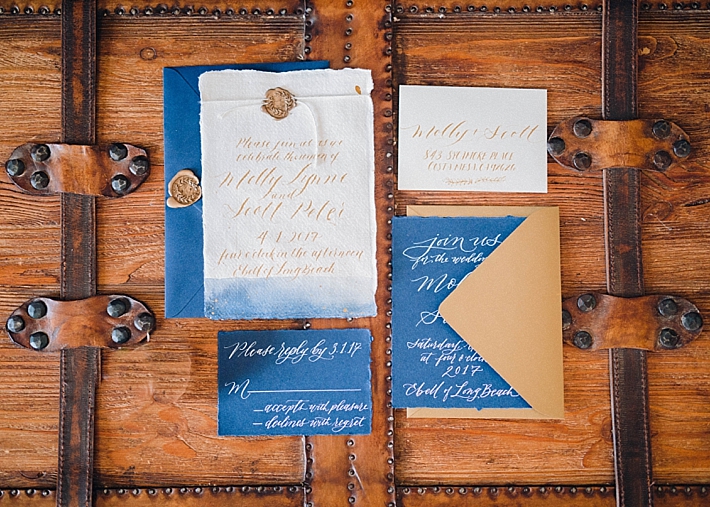 Please join us as we
celebrate the union of
Molly Lynne
and
Scott Peter
4.1.2017
four o'clock in the afternoon
Ebell of Long Beach
Molly Scott
SYCAMORE PLACE
COSTA MESA, CA 92626
Please reply by 3.1.17
M
accepts with pleasure
declines with regret
join us
for the wedding
Mo
S
Saturday,
at four o'clock
2017
Ebell of Long Beach